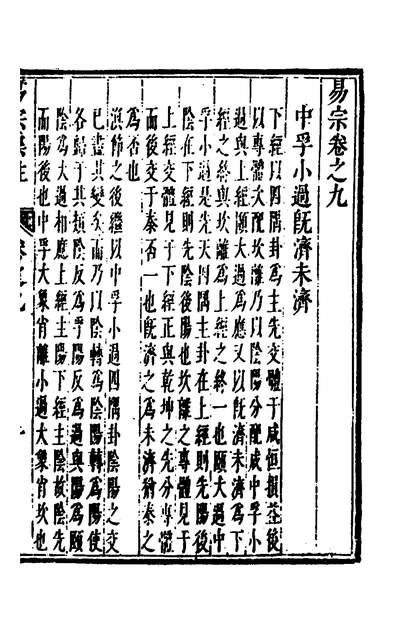 易宗卷之九
中孚小過旣濟未濟
下經以四隅卦爲主先交體于咸恒損益後
以專體大配坎離乃以陰陽分配成中孚小
過與上經頤大過爲應又以旣濟未濟爲下
經之終與坎離爲上經之終一也頤大過中
孚小過是先天四隅主卦在上經則先陽後
陰在下經則先陰後陽也坎離之專體見于
上經交體見于下經正與乾坤之先分專體
而後交于泰否一也旣濟之爲未濟猶泰之
爲否也
渙節之後繼以中孚小過四隅卦陰陽之交
已盡其變矣而乃以陰轉爲陰陽轉爲陽使
各歸于其類陰反爲孚陽反爲過與陽爲頤
陰爲大過相應上經主陽下經主陰故陰先
而陽後也中孚大象肖離小過大象肖坎也
易宗集注
卷之九